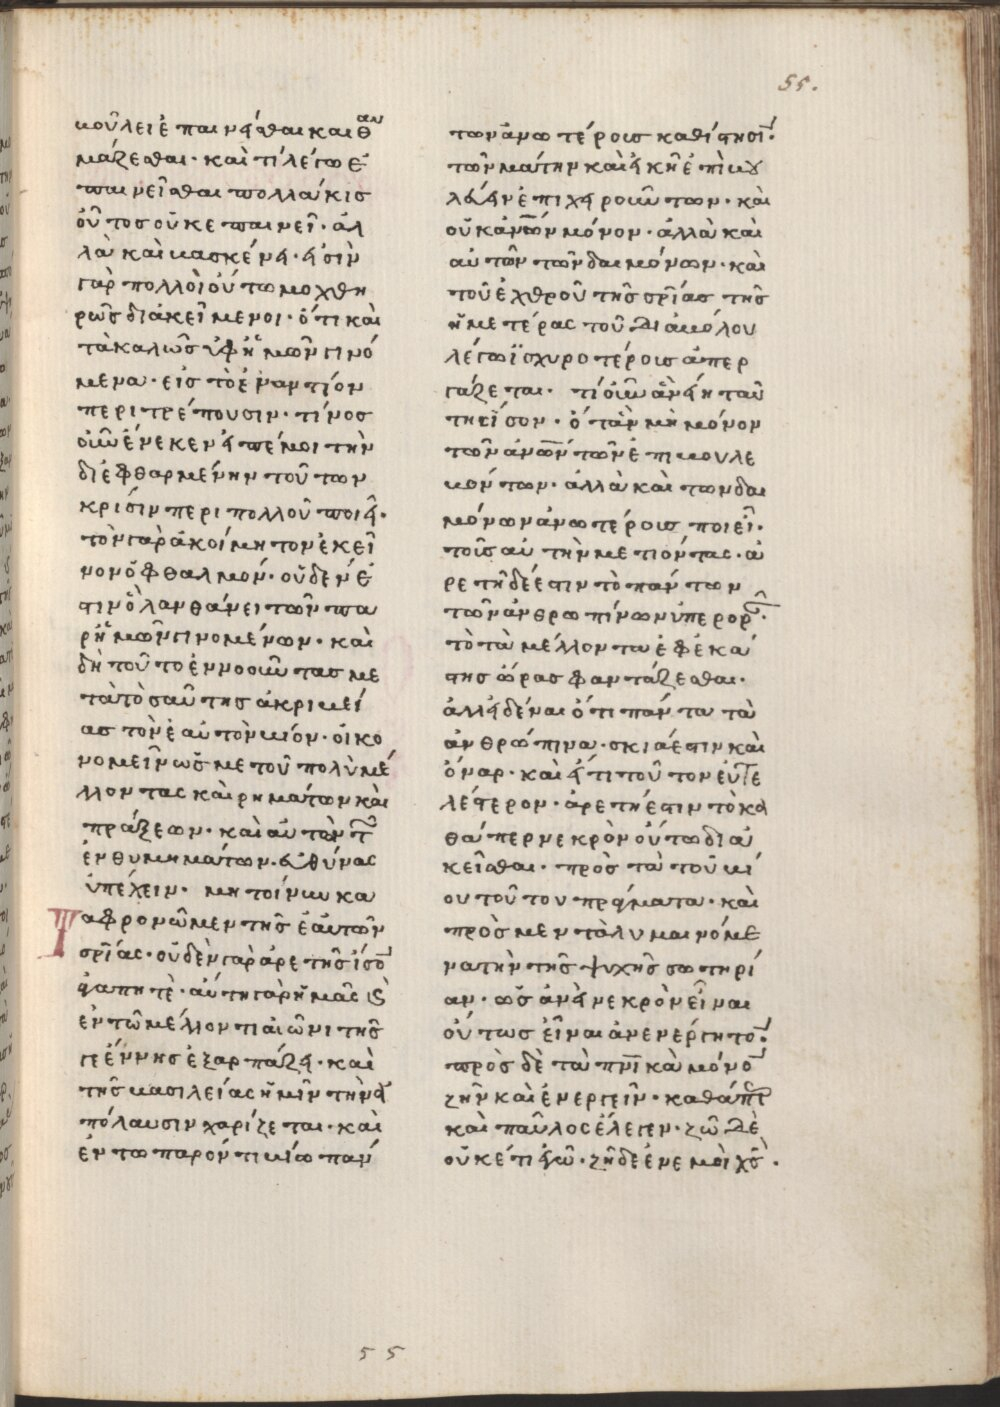 55.
βούλει ἐπαινεῖσθαι καὶ θαυ
μάζεσθαι· καὶ τί λέγω ἐ
παινεῖσθαι πολλάκις
οὗτος οὐκ ἐπαινεῖ· ἀλ
λὰ καὶ βασκένει· εἰσὶν
γὰρ πολλοὶ οὕτω μοχθη
ρῶς διακείμενοι· ὅτι καὶ
τὰ καλῶς ὑφ ἡμῶν γινό
μενα· εἰς τὸ ἐναντίον
περιτρέπουσιν· τίνος
οὖν ἕνεκεν εἰπέ μοι τὴν
διεφθαρμένην τούτων
κρίσιν περι πολλοῦ ποιεῖ·
τὸν γὰρ ἀκοίμητον ἐκεῖ
νον ὀφθαλμόν· οὐδεν ἐ
στιν ὃ λανθάνει τῶν πα
ρ ἡμῶν γινομένων· καὶ
δὴ τοῦτο ἐννοοῦντας με
τὰ τοσαύτης ἀκριβεί
ας τὸν ἑαυτὸν βίον· οἰκο
νομεῖν ὡς μετ οὐ πολὺ μέ
λλοντας καὶ ρημάτων καὶ
πράξεων· καὶ αὐτὸν τ
ἐνθυμημάτων· εὐθύνας
ὑπέχειν· μη τοίνυν κα
ταφρονῶμεν τῆς ἑαυτῶν
σρίας· οὐδὲν γὰρ ἀρετῆς ἴσον
ἀγαπητὲ· αὕτη γὰρ ἡμᾶς
ἐν τῶ μέλλοντι αἰῶνι τῆς
γεέννης ἐξαρπάζει· καὶ
τῆς βασιλείας ἡμῖν τὴν ἀ
πόλαυσιν χαρίζεται· καὶ
ἐν τω παρόντι βίω πάν
των ἀνωτέροις καθίστησι·
τῶν μάτην καὶ εἰκῆ ἐπιβου
λεύειν ἐπιχειρούντων· καὶ
οὐκ ἀνῶν μόνον· ἀλλὰ καὶ
αὐτῶν τῶν δαιμόνων· καὶ
τοῦ ἐχθροῦ τῆς σρίας τῆς
ἡμετέρας τοῦ διαβόλου
λέγω ἰσχυροτέροις ἀπερ
γάζεται· τί οὖν ἂν εἴη ταύ
τη ἶσον· ὅταν μὴ μόνον
τῶν ἀνῶν τῶν ἐπιβουλε
βόντων· ἀλλὰ καὶ των δαι
μόνων ἀνωτέροις ποιεῖ·
τοῖς αὐτὴν μετιόντας· ἀ
ρετὴ δέ ἐστιν τὸ πάντων
τῶν ἀνθρωπίνων ὑπερορᾶν·
τὸ τὰ μέλλοντα ἐφ ἑκά
στης ὥρας φαντάζεσθαι·
ἀλλ εἰδέναι ὅτι πάντα τὰ
ἀνθρώπινα· σκιά ἐστιν καὶ
ὄναρ· καὶ εἴ τι τούτον εὐτε
λέστερον· ἀρετή ἐστιν τὸ κα
θάπερ νεκρὸν οὕτω διά
κεῖσθαι· πρὸς τὰ τοῦ βί
ου τούτου πράγματα· καὶ
πρὸς μεν τὰ λυμαινόμε
να τὴν τῆς ψυχῆς σωτηρί
αν· ὡς ἀνεὶ νεκρὸν εἶναι
οὕτως εἶναι ἀνενέργητον·
πρὸς δὲ τὰ πνικὰ μόνον
ζῆν καὶ ἐνεργεῖν· καθάπερ
καὶ παῦλος ἔλεγεν· ζῶ δὲ
οὐκέτι ἐγώ· ζῆ δε ἐν εμοὶ χς·
55